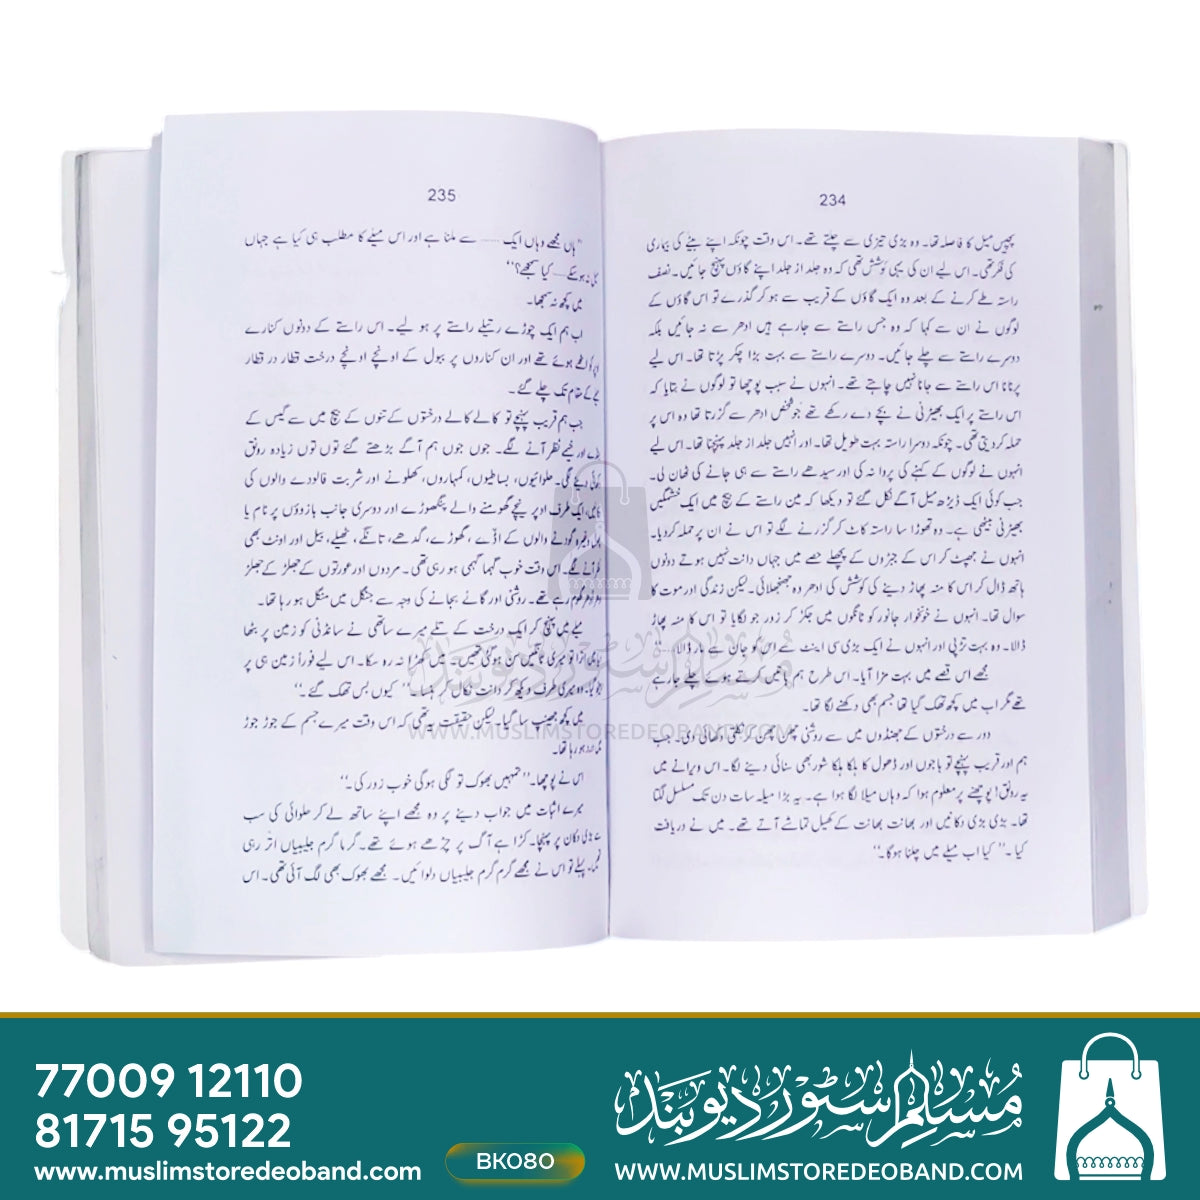 234
پچیس میل کا فاصلہ تھا۔ وہ بڑی تیزی سے چلتے تھے۔ اس وقت چونکہ اپنے بیٹے کی بیماری
کی فکر تھی۔ اس لیے ان کی یہی کوشش تھی کہ وہ جلد از جلد اپنے گاؤں پہنچ جائیں۔ نصف
راستہ طے کرنے کے بعد وہ ایک گاؤں کے قریب سے ہو کر گذرے تو اس گاؤں کے
لوگوں نے ان سے کہا کہ وہ جس راستے سے جا رہے ہیں ادھر سے نہ جائیں بلکہ
دوسرے راستے سے چلے جائیں۔ دوسرے راستے سے بہت بڑا چکر پڑتا تھا۔ اس لیے
پرنانا اس راستے سے جانا نہیں چاہتے تھے۔ انہوں نے سبب پوچھا تو لوگوں نے بتایا کہ
اس راستے پر ایک بھیڑنی نے بچے دے رکھے تھے جو شخص ادھر سے گزرتا تھا وہ اس پر
حملہ کر دیتی تھی۔ چونکہ دوسرا راستہ بہت طویل تھا۔ اور انہیں جلد از جلد پہنچنا تھا۔ اس لیے
انہوں نے لوگوں کے کہنے کی پروا نہ کی اور سیدھے راستے سے ہی جانے کی ٹھان لی۔
جب کوئی ایک ڈیڑھ میل آگے نکل گئے تو دیکھا کہ عین راستے کے بیچ میں ایک خشمگیں
بھیڑنی بیٹھی ہے۔ وہ تھوڑا سا راستہ کاٹ کر گزرنے لگے تو اس نے ان پر حملہ کر دیا۔
انہوں نے جھپٹ کر اس کے جبڑوں کے پچھلے حصے میں جہاں دانت نہیں ہوتے دونوں
ہاتھ ڈال کر اس کا منہ پھاڑ دینے کی کوشش کی ادھر وہ جھنجھلائی۔ لیکن زندگی اور موت کا
سوال تھا۔ انہوں نے خونخوار جانور کو ٹانگوں میں جکڑ کر زور جو لگایا تو اس کا منہ پھاڑ
ڈالا۔ وہ بہت تڑپی اور انہوں نے ایک بڑی سی اینٹ سے اس کو جان سے مار ڈالا.....“
مجھے اس قصے میں بہت مزا آیا۔ اس طرح ہم باتیں کرتے ہوئے چلے جا رہے
تھے مگر اب میں کچھ تھک گیا تھا جسم بھی دکھنے لگا تھا۔
دور سے درختوں کے جھنڈوں میں سے روشنی چھن چھن کر نکلتی دکھائی دی۔ جب
ہم اور قریب پہنچے تو باجوں اور ڈھول کا ہلکا ہلکا شور بھی سنائی دینے لگا۔ اس ویرانے میں
یہ رونق! پوچھنے پر معلوم ہوا کہ وہاں میلا لگا ہوا ہے۔ یہ بڑا میلہ سات دن تک مسلسل لگتا
تھا۔ بڑی بڑی دکانیں اور بھانت بھانت کے کھیل تماشے آتے تھے۔ میں نے دریافت
کیا۔”کیا اب میلے میں چلنا ہوگا۔“
235
”ہاں مجھے وہاں ایک ..... سے ملنا ہے اور اس میلے کا مطلب ہی کیا ہے جہاں
نہ ہو سکے..... کیا سمجھے؟“
میں کچھ نہ سمجھا۔
اب ہم ایک چوڑے رتیلے راستے پر ہو لیے۔ اس راستے کے دونوں کنارے
ہوئے تھے اور ان کناروں پر ببول کے اونچے اونچے درخت قطار در قطار
کے مقام تک چلے گئے۔
جب ہم قریب پہنچے تو کالے کالے درختوں کے تنوں کے بیچ میں سے گیس کے
اور خیمے نظر آنے لگے۔ جوں جوں ہم آگے بڑھتے گئے توں توں زیادہ رونق
دینے لگی۔ حلوائیوں، بساطیوں، کمہاروں، کھلونے اور شربت فالودے والوں کی
ایک طرف اوپر نیچے گھومنے والے پنگھوڑے اور دوسری جانب بازوؤں پر نام یا
وغیرہ گودنے والوں کے اڈے۔ گھوڑے، گدھے، تانگے، ٹھیلے، بیل اور اونٹ بھی
آنے لگے۔ اس وقت خوب گہما گہمی ہو رہی تھی۔ مردوں اور عورتوں کے جھلڑ کے جھلڑ
گھوم رہے تھے۔ روشنی اور گانے بجانے کی وجہ سے جنگل میں منگل ہو رہا تھا۔
میلے میں پہنچ کر ایک درخت کے تلے میرے ساتھی نے سانڈنی کو زمین پر بٹھا
اترا تو میری ٹانگیں سن ہو گئی تھیں۔ میں کھڑا نہ رہ سکا۔ اس لیے فوراً زمین ہی پر
گیا۔ وہ میری طرف دیکھ کر دانت نکال کر ہنسا۔”کیوں بس تھک گئے۔“
میں کچھ جھینپ سا گیا۔ لیکن حقیقت یہ تھی کہ اس وقت میرے جسم کے جوڑ جوڑ
درد ہو رہا تھا۔
اس نے پوچھا۔”تمہیں بھوک تو لگی ہوگی خوب زور کی۔“
میرے اثبات میں جواب دینے پر وہ مجھے اپنے ساتھ لے کر حلوائی کی سب
بڑی دکان پر پہنچا۔ کڑاہے آگ پر چڑھے ہوئے تھے۔ گرما گرم جلیبیاں اتر رہی
تھیں۔ پہلے تو اس نے مجھے گرم گرم جلیبیاں دلوائیں۔ مجھے بھوک بھی لگ آئی تھی۔ اس
مسلم سٹور دیوبند
WWW.MUSLIMSTOREDEOBAND.COM
77009 12110
81715 95122
www.muslimstoredeoband.com
BK080
مسلم سٹور دیوبند
WWW.MUSLIMSTOREDEOBAND.COM